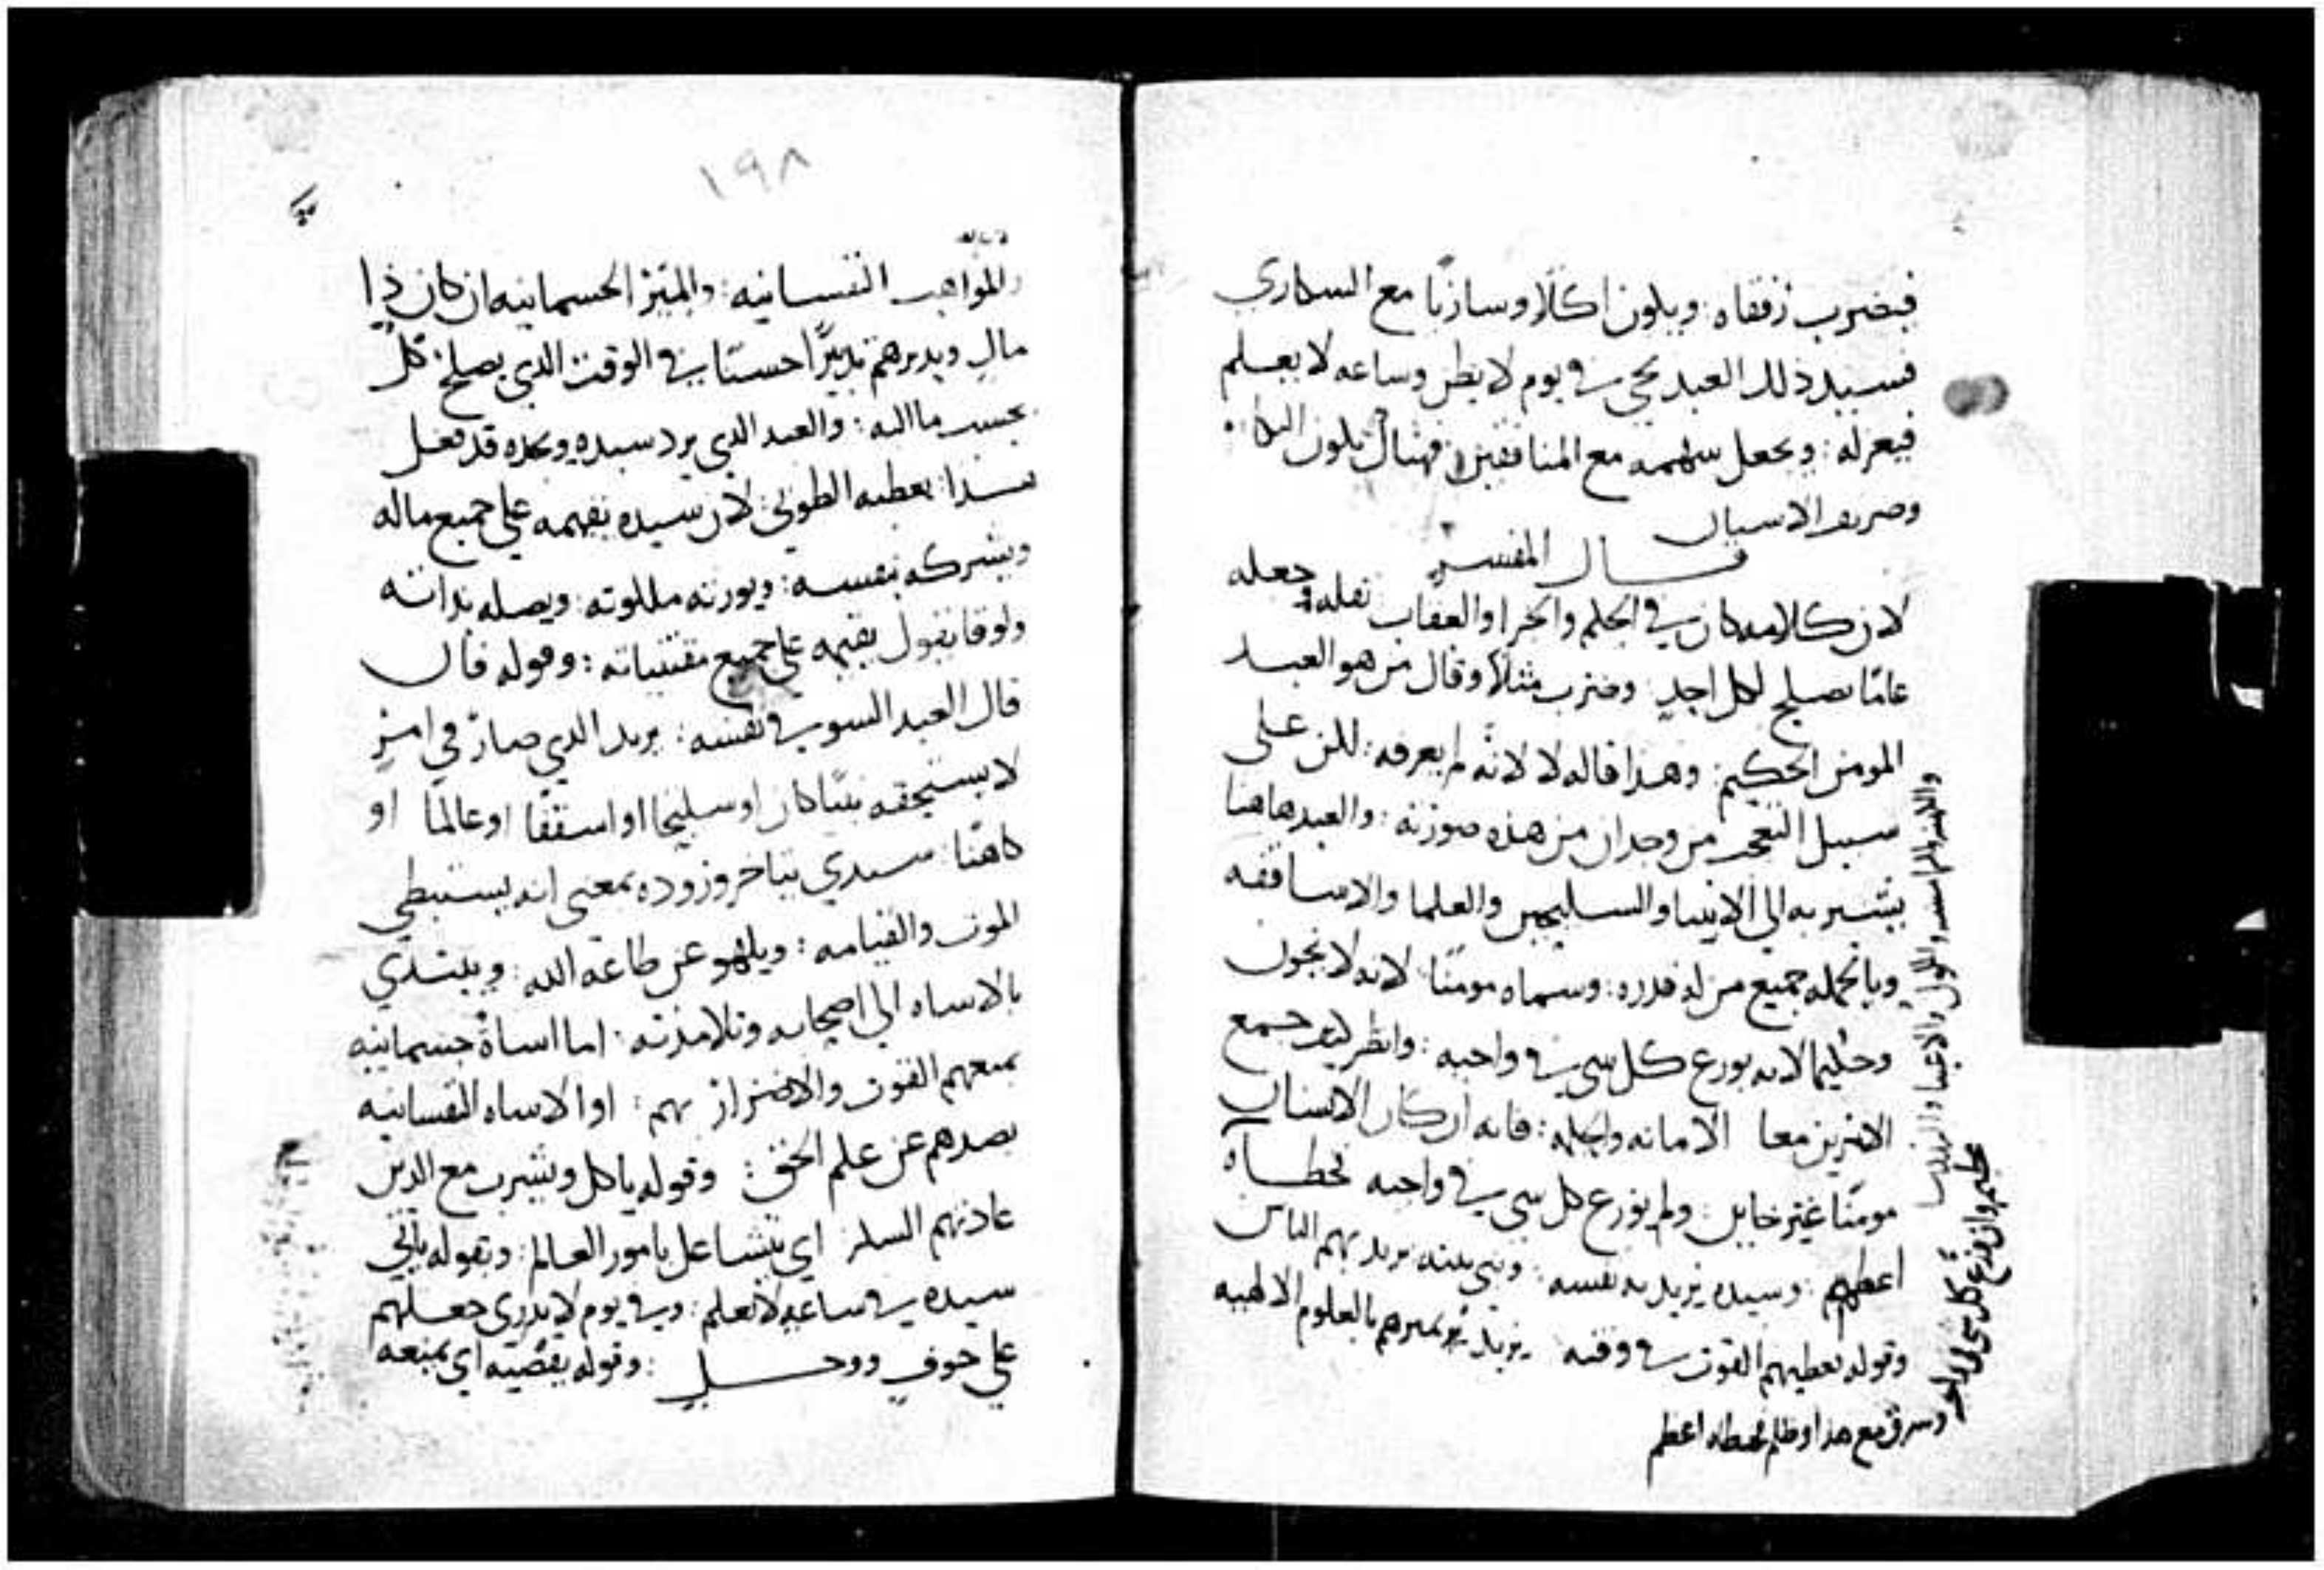 فيضرب رفقاه : ويكون اكلا وساربا مع السكاري
فسيد ذلك العبد يجي في يوم لا يظن وساعه لا يعلم
فيعزله : ويجعل سهمه مع المنافقين : فهناك يكون البكا :
وصريف الاسنان
قال المفسر
لان كلامه كان في الحلم والجزا والعقاب نقله وجعله
عاما يصلح لكل احد : وضرب مثلا وقال من هو العبد
المومن الحكيم : وهذا قاله لا لانه لم يعرفه : لكن على
سبيل التعجب من وجدان من هذه صورته : والعبد هاهنا
يشير به الي الانبيا والسليحين والعلما والاساقفه
وبالجمله جميع من له قدره : وسماه مومنا لانه لا يخون
وحكيما لانه يوزع كل شي في واجبه : وانظر كيف جمع
الامرين معا الامانه والحكمه : فانه ان كان الانسان
مومنا غير خاين : ولم يوزع كل شي في واجبه فخطاه
اعظم : وسيده يريد به نفسه : وبني بيته يريد بهم الناس
وقوله يعطيهم القوت في وقته يريد يميرهم بالعلوم الالهيه
عظيم وان وزع كل شي
وسرق مع هذا وظلم فخطاه اعظم
١٩٨
والمواهب النفسانيه : والمير الجسمانيه ان كان ذا
مال ويدبرهم تدبيرا حسنا في الوقت الذي يصلح : كل
بحسب ما اليه : والعبد الذي يرد سيده ويجده قد فعل
هكذا : يعطيه الطوبي : لان سيده يقيمه علي جميع ماله
ويشركه بنفسه : ويورثه ملكوته : ويصله بذاته
ولوقا يقول يقيمه علي جميع مقتنياته : وقوله فان
قال العبد السوء في نفسه : يريد الذي صار في امر
لا يستحقه نبيا كان او سليحا او اسقفا او عالما او
كاهنا : سيدي يتاخر وروده بمعني انه يستبطي
الموت والقيامه : ويلهو عن طاعة الله : ويبتدي
بالاساه الي اصحابه وتلامذته : اما اساة جسمانيه
بمنعهم القوت والاضرار بهم : او الاساه النفسانيه
بصدهم عن علم الحق : وقوله ياكل ويشرب مع الذين
عادتهم السكر اي يتشاغل بامور العالم : وبقوله ياتي
سيده في ساعه لا يعلم : وفي يوم لا يدري جعلهم
علي خوف ووجل : وقوله يقصيه اي يمنعه